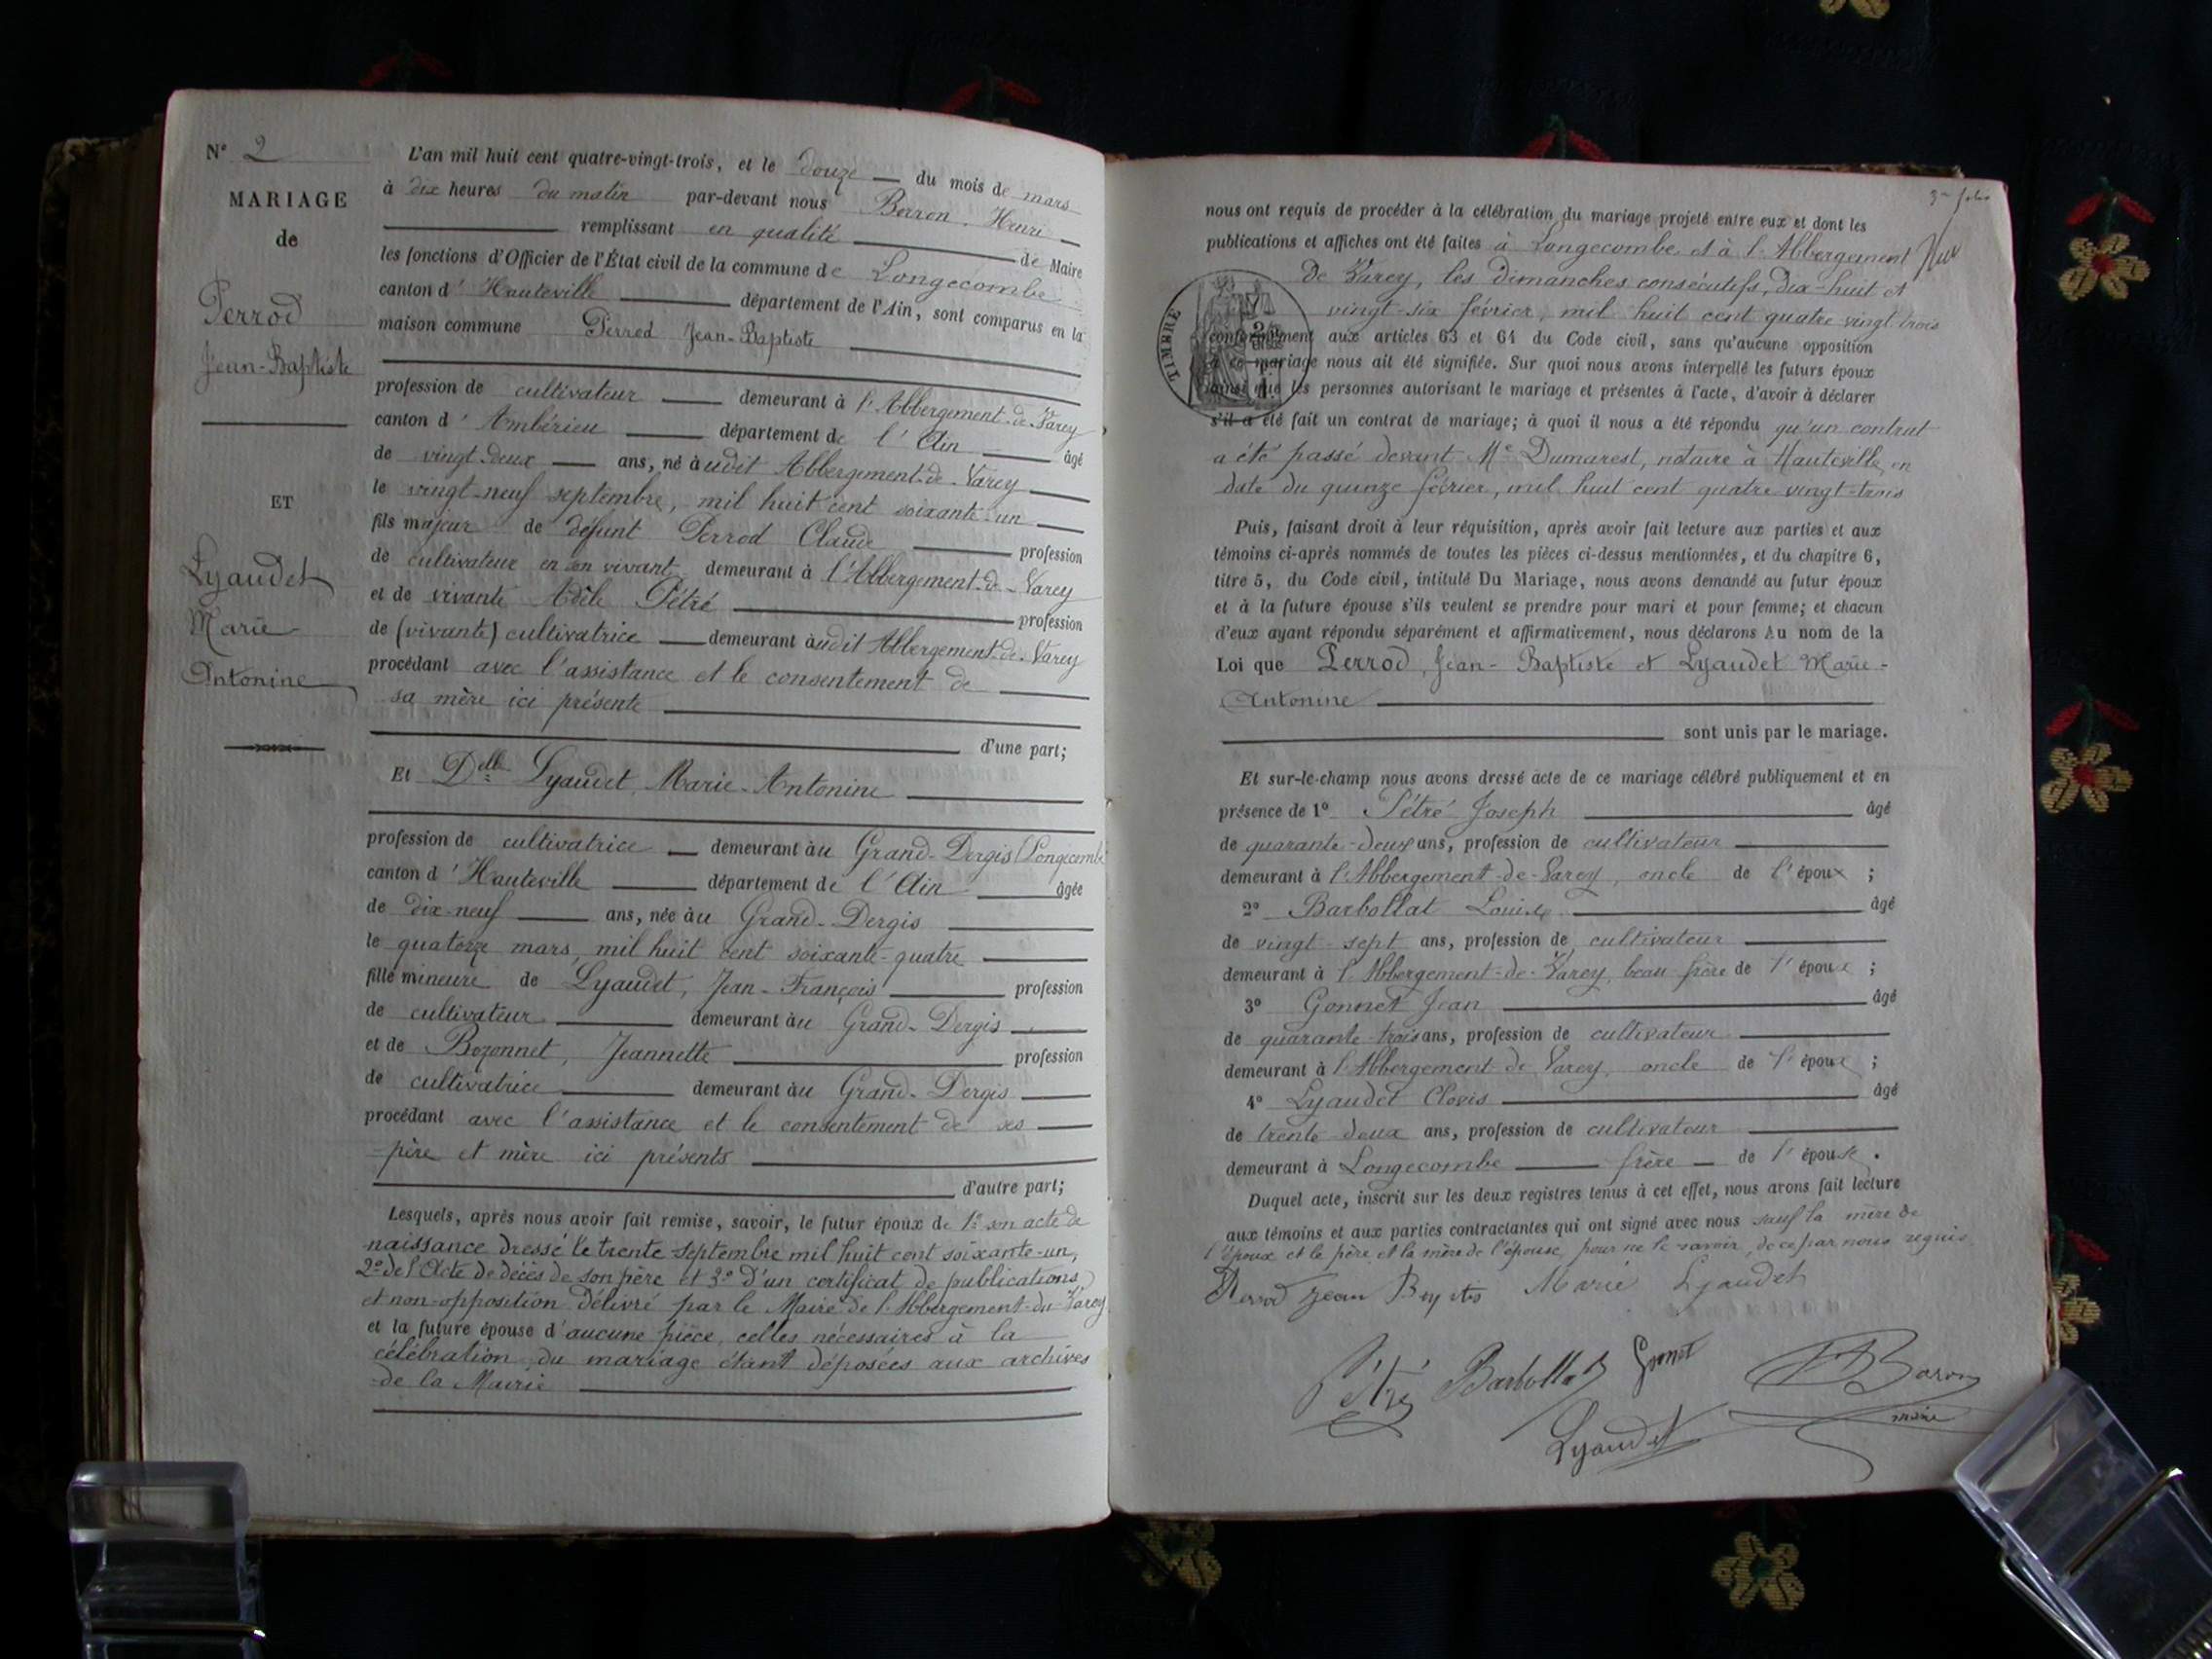 N° 2
MARIAGE
de
Perrod
Jean-Baptiste
ET
Lyaudet
Marie
Antonine
L'an mil huit cent quatre-vingt-trois, et le douze du mois de mars
à dix heures du matin par-devant nous Berron, Henri
remplissant en qualité de Maire
les fonctions d'Officier de l'État civil de la commune de Longecombe
canton d'Hauteville département de l'Ain, sont comparus en la
maison commune Perrod Jean-Baptiste
profession de cultivateur demeurant à l'Abbergement-de-Varey
canton d'Ambérieu département de l'Ain âgé
de vingt-deux ans, né audit Abbergement-de-Varey
le vingt-neuf septembre, mil huit cent soixante-un
fils majeur de défunt Perrod Claude profession
de cultivateur en son vivant demeurant à l'Abbergement-de-Varey
et de vivante Adèle Pétré profession
de (vivante) cultivatrice demeurant audit Abbergement-de-Varey
procédant avec l'assistance et le consentement de
sa mère ici présente
d'une part;
Et Delle Lyaudet, Marie-Antonine
profession de cultivatrice demeurant au Grand-Dergis (Longecombe
canton d'Hauteville département de l'Ain âgée
de dix-neuf ans, née au Grand-Dergis
le quatorze mars, mil huit cent soixante-quatre
fille mineure de Lyaudet, Jean-François profession
de cultivateur demeurant au Grand-Dergis
et de Bozonnet, Jeannette profession
de cultivatrice demeurant au Grand-Dergis
procédant avec l'assistance et le consentement de ses
père et mère ici présents
d'autre part;
Lesquels, après nous avoir fait remise, savoir, le futur époux de 1° son acte de
naissance dressé le trente septembre mil huit cent soixante-un,
2° de l'Acte de décès de son père et 3° d'un certificat de publications
et non-opposition délivré par le Maire de l'Abbergement-du-Varey
et la future épouse d'aucune pièce, celles nécessaires à la
célébration du mariage étant déposées aux archives
de la Mairie
3me folio
nous ont requis de procéder à la célébration du mariage projeté entre eux et dont les
publications et affiches ont été faites à Longecombe et à l'Abbergement
de Varey, les dimanches consécutifs, dix-huit et
vingt-six février, mil huit cent quatre vingt trois
TIMBRE
conformément aux articles 63 et 64 du Code civil, sans qu'aucune opposition
à ce mariage nous ait été signifiée. Sur quoi nous avons interpellé les futurs époux
ainsi que les personnes autorisant le mariage et présentes à l'acte, d'avoir à déclarer
s'il a été fait un contrat de mariage; à quoi il nous a été répondu qu'un contrat
a été passé devant Me Dumarest, notaire à Hauteville, en
date du quinze février, mil huit cent quatre vingt-trois
Puis, faisant droit à leur réquisition, après avoir fait lecture aux parties et aux
témoins ci-après nommés de toutes les pièces ci-dessus mentionnées, et du chapitre 6,
titre 5, du Code civil, intitulé Du Mariage, nous avons demandé au futur époux
et à la future épouse s'ils veulent se prendre pour mari et pour femme; et chacun
d'eux ayant répondu séparément et affirmativement, nous déclarons Au nom de la
Loi que Perrod, Jean-Baptiste et Lyaudet Marie-
Antonine
sont unis par le mariage.
Et sur-le-champ nous avons dressé acte de ce mariage célébré publiquement et en
présence de 1° Pétré Joseph âgé
de quarante-deux ans, profession de cultivateur
demeurant à l'Abbergement-de-Varey, oncle de l'époux ;
2° Barbollat Louis âgé
de vingt-sept ans, profession de cultivateur
demeurant à l'Abbergement-de-Varey, beau frère de l'époux ;
3° Gonnet Jean âgé
de quarante-trois ans, profession de cultivateur
demeurant à l'Abbergement de Varey, oncle de l'époux ;
4° Lyaudet Clovis âgé
de trente-deux ans, profession de cultivateur
demeurant à Longecombe frère de l'épouse.
Duquel acte, inscrit sur les deux registres tenus à cet effet, nous avons fait lecture
aux témoins et aux parties contractantes qui ont signé avec nous sauf la mère de
l'époux et le père et la mère de l'épouse, pour ne le savoir, de ce par nous requis
Perrod Jean Marie Lyaudet
Pétré Barbollat Gonnet
Lyaudet
maire